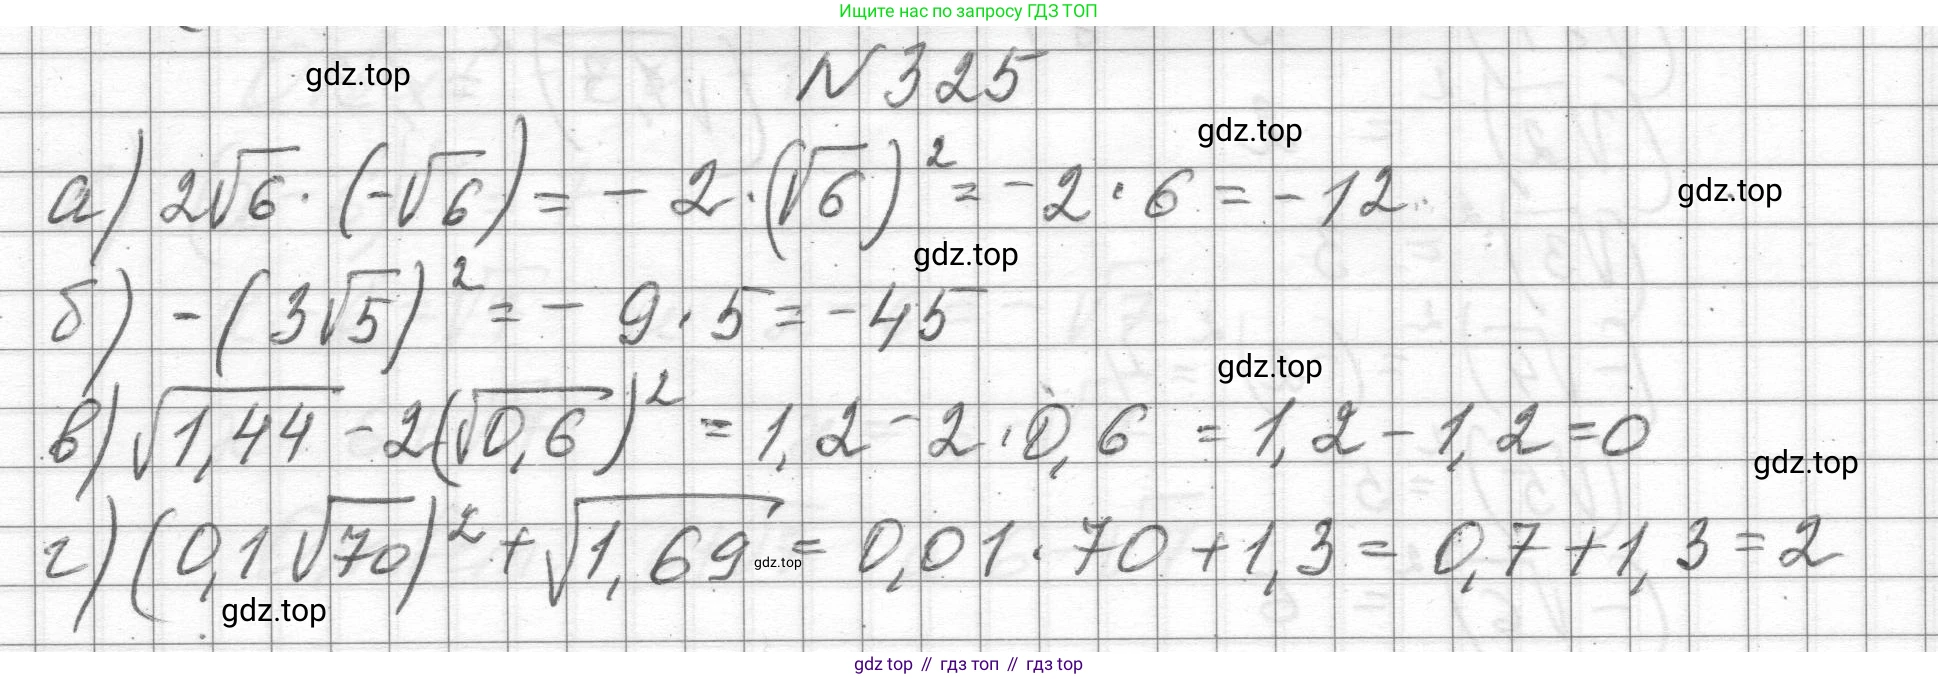 Ищите нас по запросу ГДЗ ТОП
N 325
gdz.top
gdz.top
а) 2√6 · (-√6) = - 2 · (√6)² = - 2 · 6 = - 12
gdz.top
gdz.top
б) - (3√5)² = - 9 · 5 = - 45
gdz.top
в) √1,44 - 2(√0,6)² = 1,2 - 2 · 0,6 = 1,2 - 1,2 = 0
gdz.top
г) (0,1√70)² + √1,69 = 0,01 · 70 + 1,3 = 0,7 + 1,3 = 2
gdz.top
gdz.top
gdz top // гдз топ // гдз top